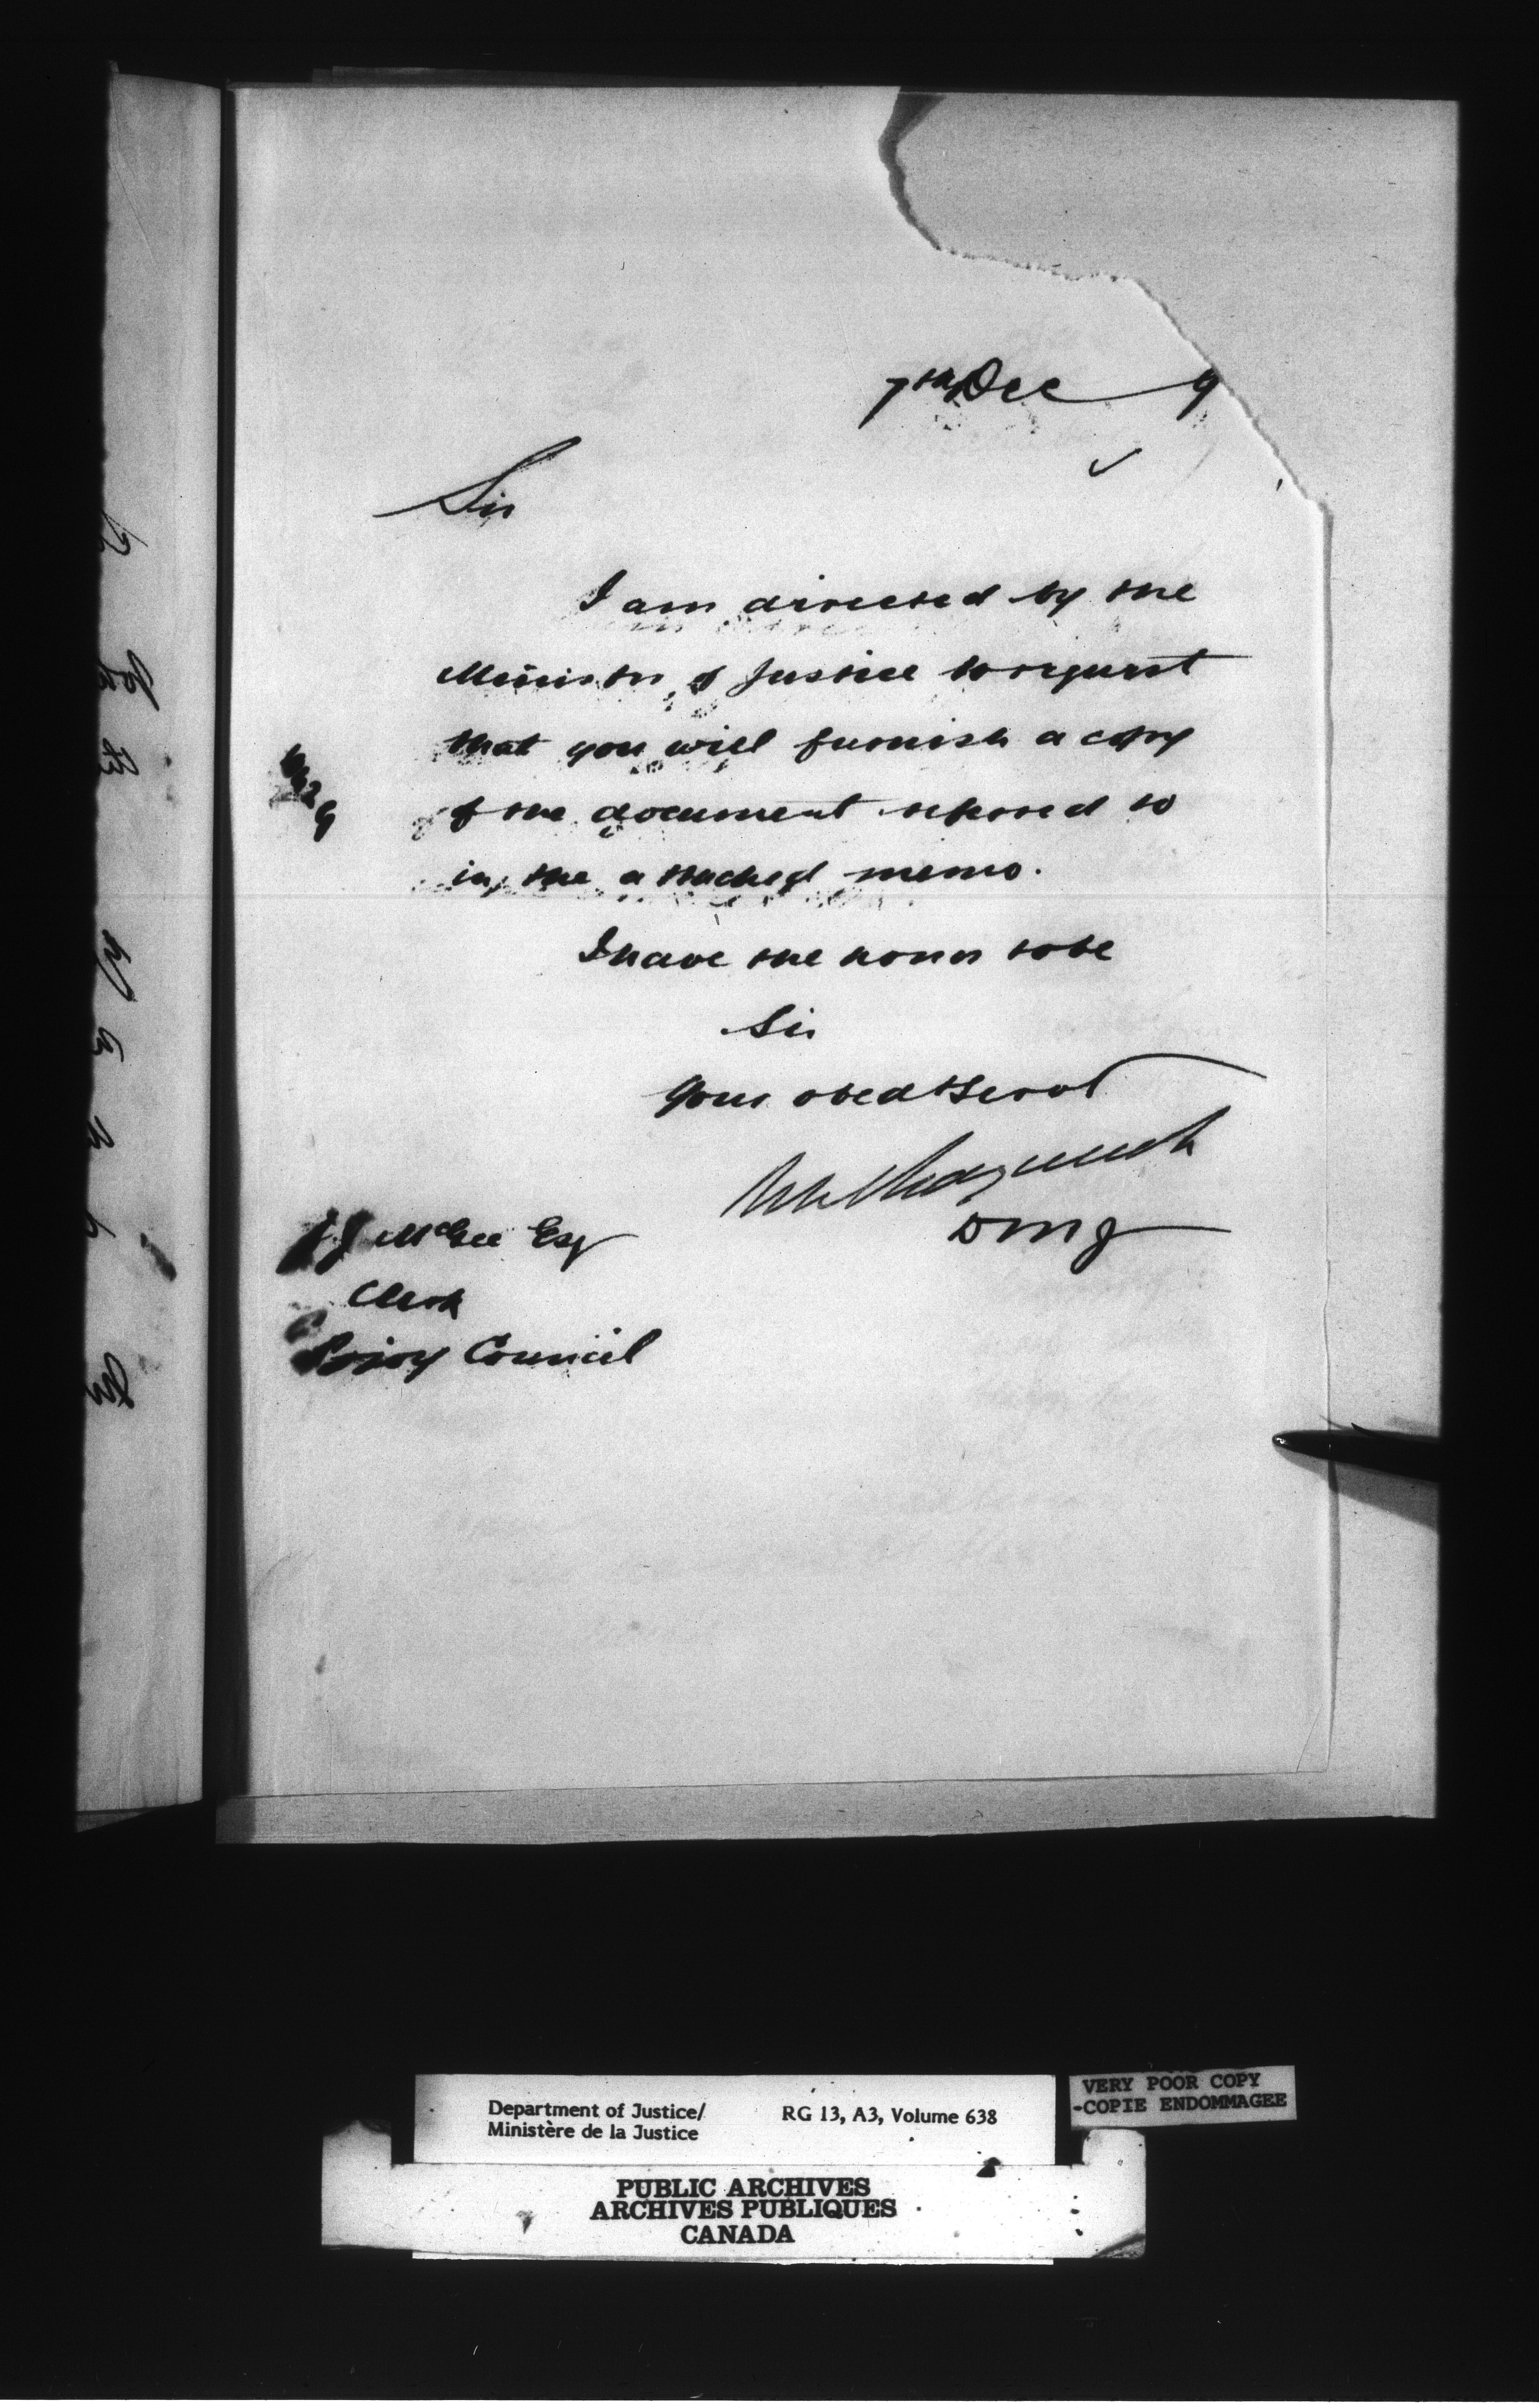 7th Dec 9
Sir
I am directed by the
Minister of Justice to request
that you will furnish a copy
of the document referred to
in the attached memo.
I have the honor to be
Sir
Your obedt Servt
DMJ
J McGee Esq
Clerk
Privy Council
Department of Justice/
Ministère de la Justice
RG 13, A3, Volume 638
VERY POOR COPY
-COPIE ENDOMMAGEE
PUBLIC ARCHIVES
ARCHIVES PUBLIQUES
CANADA